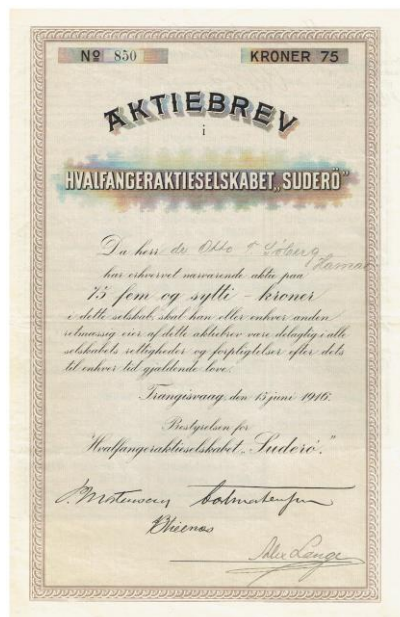 Nº 850 KRONER 75
AKTIEBREV
i
HVALFANGERAKTIESELSKABET „SUDERÖ"
Da herr dr Otto Søberg
Hamar
har erhvervet nærværende aktie paa
75 fem og sytti - kroner
i dette selskab, skal han eller enhver anden
retmæssig eier af dette aktiebrev være delagtig i alle
selskabets rettigheder og forpligtelser efter dets
til enhver tid gjældende love.
Trangisvaag, den 15 juni 1916.
Bestyrelsen for
Hvalfangeraktieselskabet „Suderö."
P. Mortensen
Alex Lange